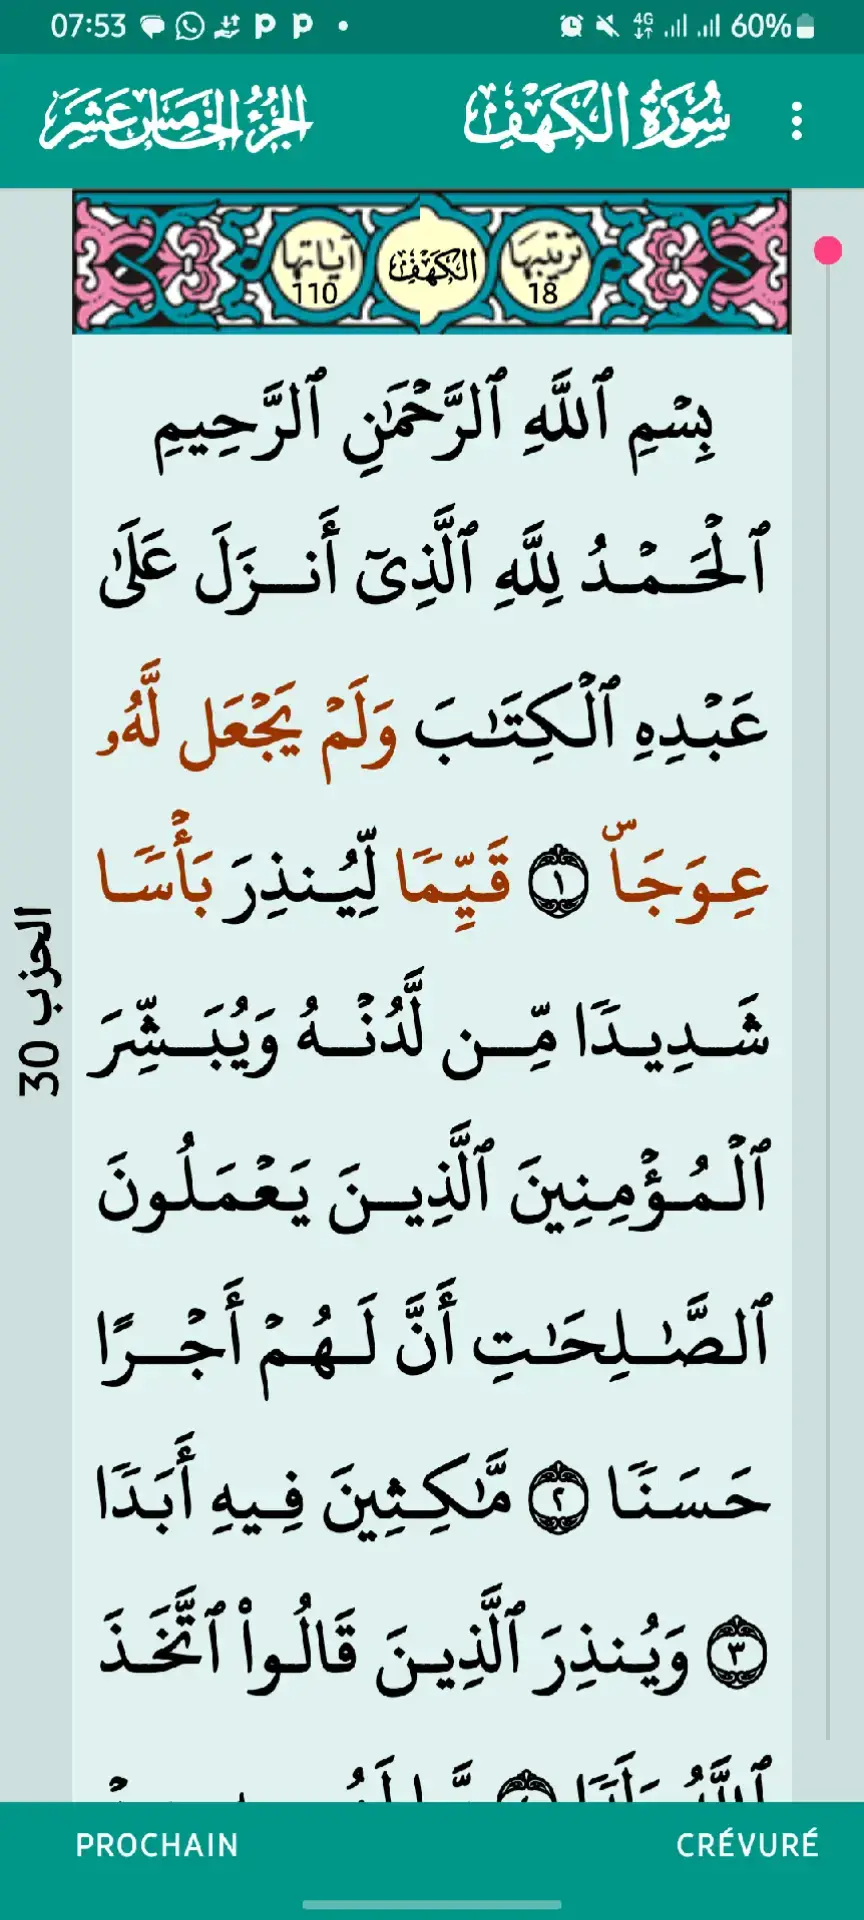 07:53 P P 4G 60%
سُورَةُ الكَهْفِ الجُزْءُ الخَامِسَ عَشَرَ
ترتيبها 18 الكهف آياتها 110
بِسْمِ ٱللَّهِ ٱلرَّحْمَٰنِ ٱلرَّحِيمِ
ٱلْحَمْدُ لِلَّهِ ٱلَّذِىٓ أَنزَلَ عَلَىٰ
عَبْدِهِ ٱلْكِتَٰبَ وَلَمْ يَجْعَل لَّهُۥ
عِوَجَاۜ ١ قَيِّمًا لِّيُنذِرَ بَأْسًا
شَدِيدًا مِّن لَّدُنْهُ وَيُبَشِّرَ
ٱلْمُؤْمِنِينَ ٱلَّذِينَ يَعْمَلُونَ
ٱلصَّٰلِحَٰتِ أَنَّ لَهُمْ أَجْرًا
حَسَنًا ٢ مَّٰكِثِينَ فِيهِ أَبَدًا
٣ وَيُنذِرَ ٱلَّذِينَ قَالُوا۟ ٱتَّخَذَ
ٱللَّهُ وَلَدًا
الحزب 30
PROCHAIN CRÉVURÉ